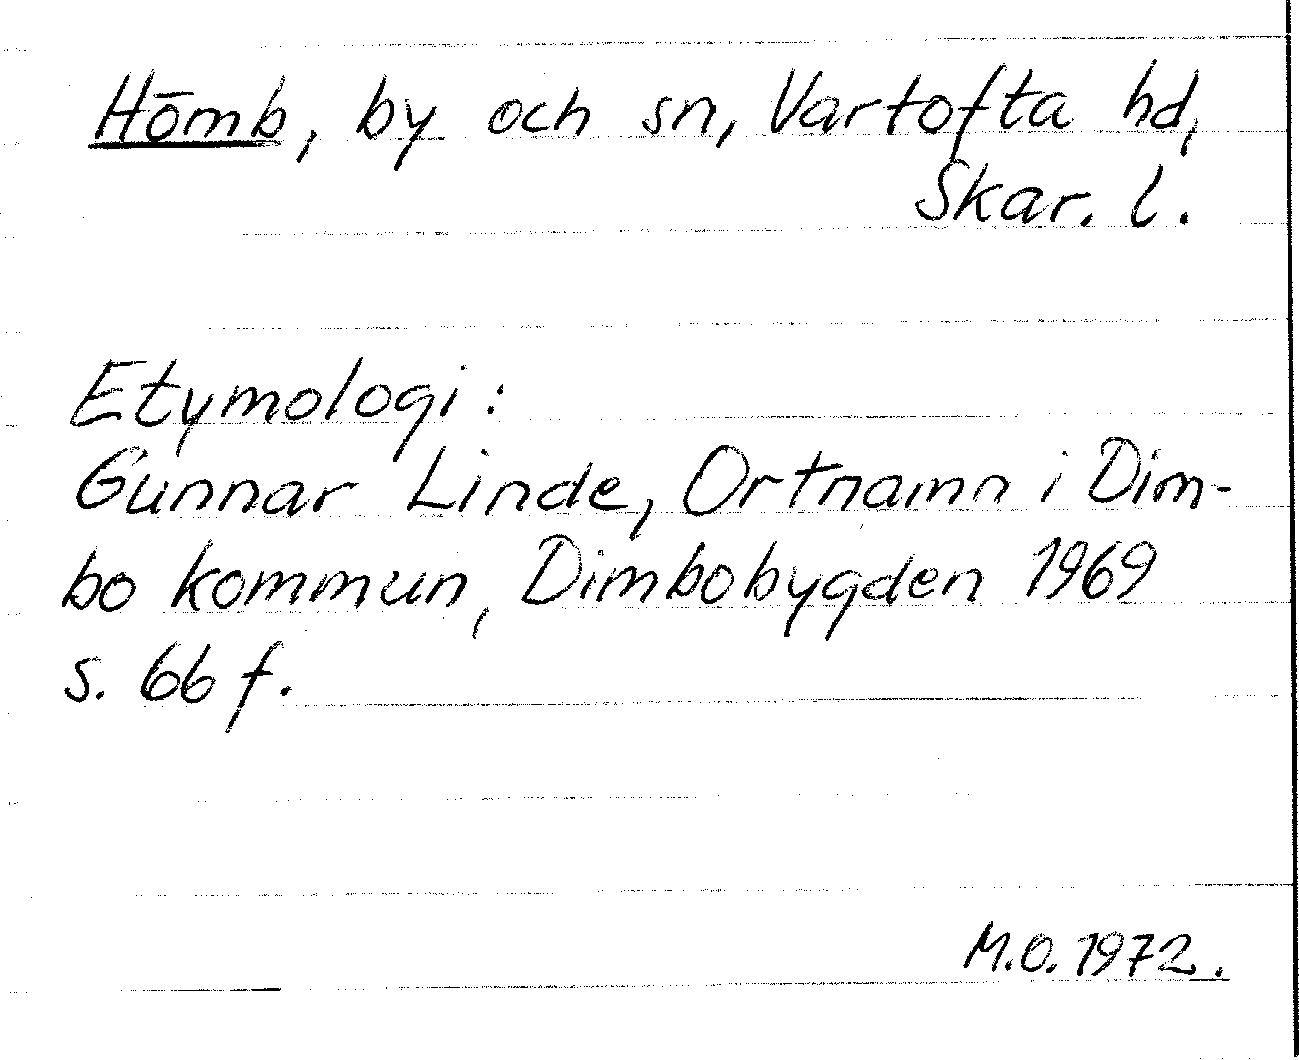 Hömb, by och sn, Vartofta hd,
Skar. l.
Etymologi:
Gunnar Linde, Ortnamn i Dim-
bo kommun, Dimbobygden 1969
s. 66 f.
M.O. 1972.